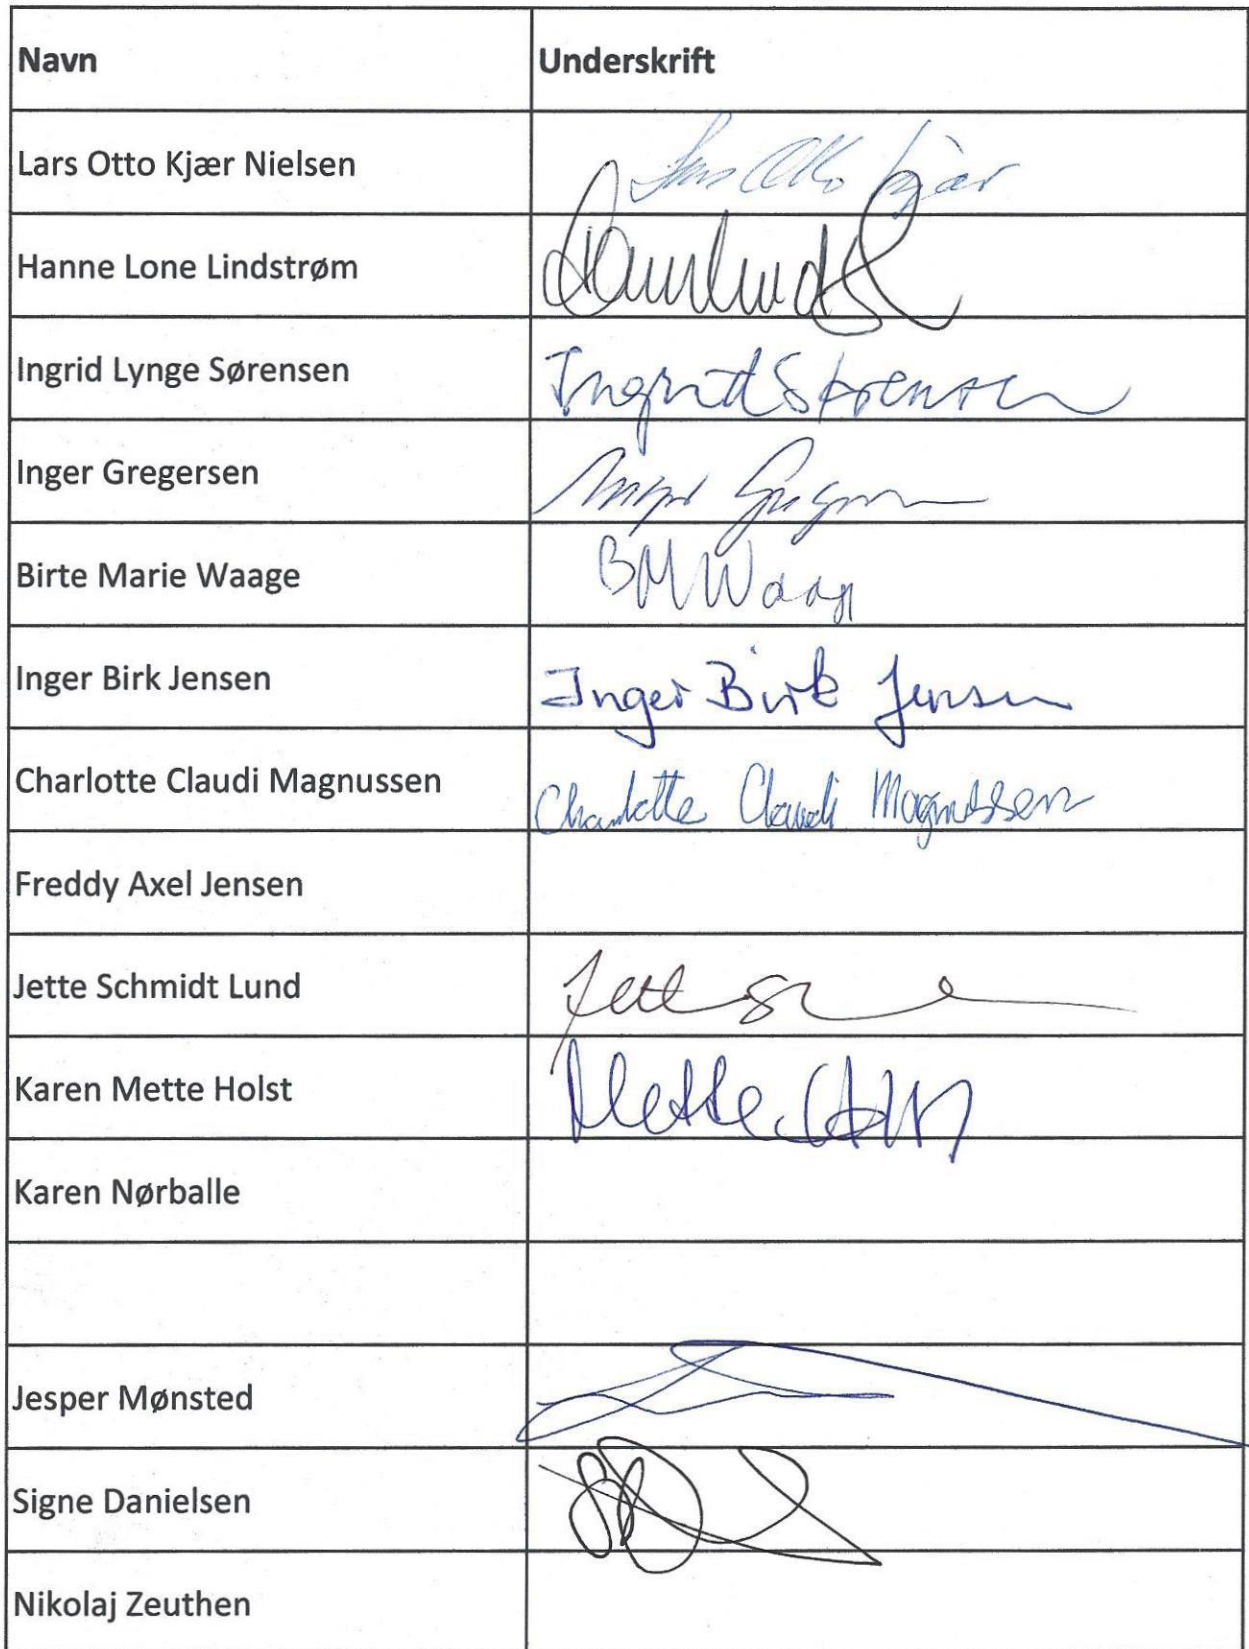 Navn Underskrift
Lars Otto Kjær Nielsen Lars Otto Kjær
Hanne Lone Lindstrøm
Ingrid Lynge Sørensen Ingrid Sørensen
Inger Gregersen Inger
Birte Marie Waage BM Waage
Inger Birk Jensen Inger Birk Jensen
Charlotte Claudi Magnussen Charlotte Claudi Magnussen
Freddy Axel Jensen
Jette Schmidt Lund Jette
Karen Mette Holst Mette
Karen Nørballe
Jesper Mønsted
Signe Danielsen
Nikolaj Zeuthen